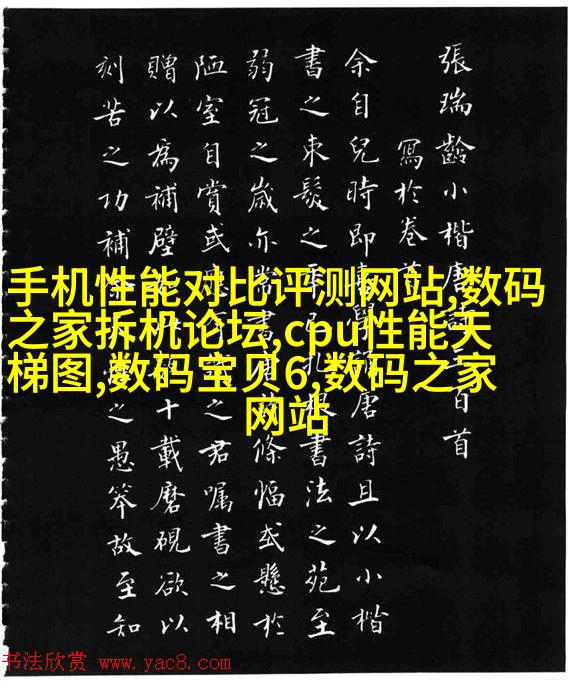 張瑞齡小楷唐詩三百首
寫於卷首
余自兒時即唐詩且以小楷
書之束髮之年扎根書法之苑至
弱冠之歲亦常書唐條幅或懸於
陋室自賞或之君囑書之相
贈以為補壁十載磨硯欲以
刻苦之功補之愚笨故至知
手机性能对比评测网站,数码
之家拆机论坛,cpu性能天
梯图,数码宝贝6,数码之家
网站
书法欣赏 www.yac8.com